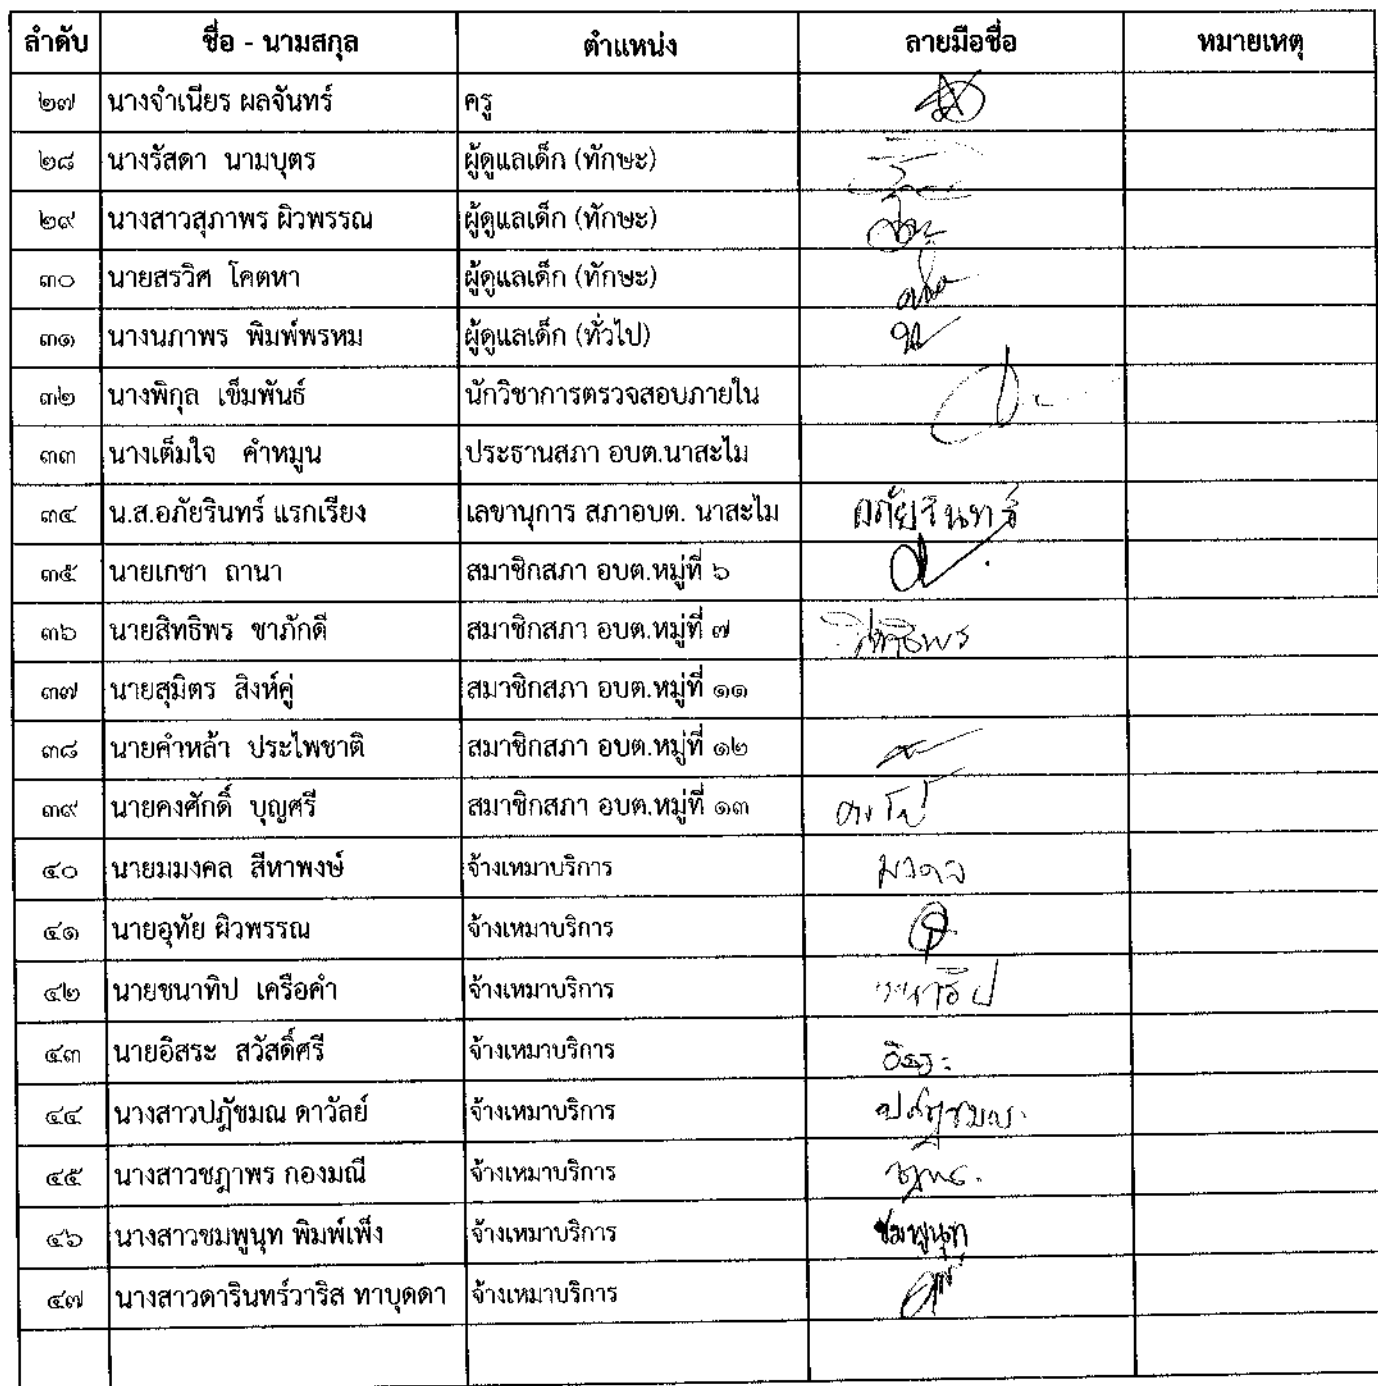 ลำดับ ชื่อ - นามสกุล ตำแหน่ง ลายมือชื่อ หมายเหตุ
๒๗ นางจำเนียร ผลจันทร์ ครู
๒๘ นางรัสดา นามบุตร ผู้ดูแลเด็ก (ทักษะ)
๒๙ นางสาวสุภาพร ผิวพรรณ ผู้ดูแลเด็ก (ทักษะ)
๓๐ นายสรวิศ โคตหา ผู้ดูแลเด็ก (ทักษะ)
๓๑ นางนภาพร พิมพ์พรหม ผู้ดูแลเด็ก (ทั่วไป)
๓๒ นางพิกุล เข็มพันธ์ นักวิชาการตรวจสอบภายใน
๓๓ นางเต็มใจ คำหมูน ประธานสภา อบต.นาสะไม
๓๔ น.ส.อภัยรินทร์ แรกเรียง เลขานุการ สภาอบต. นาสะไม อภัยรินทร์
๓๕ นายเกชา ถานา สมาชิกสภา อบต.หมู่ที่ ๖
๓๖ นายสิทธิพร ชาภักดี สมาชิกสภา อบต.หมู่ที่ ๗ สิทธิพร
๓๗ นายสุมิตร สิงห์คู่ สมาชิกสภา อบต.หมู่ที่ ๑๑
๓๘ นายคำหล้า ประไพชาติ สมาชิกสภา อบต.หมู่ที่ ๑๒
๓๙ นายคงศักดิ์ บุญศรี สมาชิกสภา อบต.หมู่ที่ ๑๓
๔๐ นายมมงคล สีหาพงษ์ จ้างเหมาบริการ
๔๑ นายอุทัย ผิวพรรณ จ้างเหมาบริการ
๔๒ นายชนาทิป เครือคำ จ้างเหมาบริการ
๔๓ นายอิสระ สวัสดิ์ศรี จ้างเหมาบริการ อิสระ
๔๔ นางสาวปฎัชมณ ดาวัลย์ จ้างเหมาบริการ
๔๕ นางสาวชฎาพร กองมณี จ้างเหมาบริการ
๔๖ นางสาวชมพูนุท พิมพ์เพ็ง จ้างเหมาบริการ ชมพูนุท
๔๗ นางสาวดารินทร์วาริส ทาบุดดา จ้างเหมาบริการ